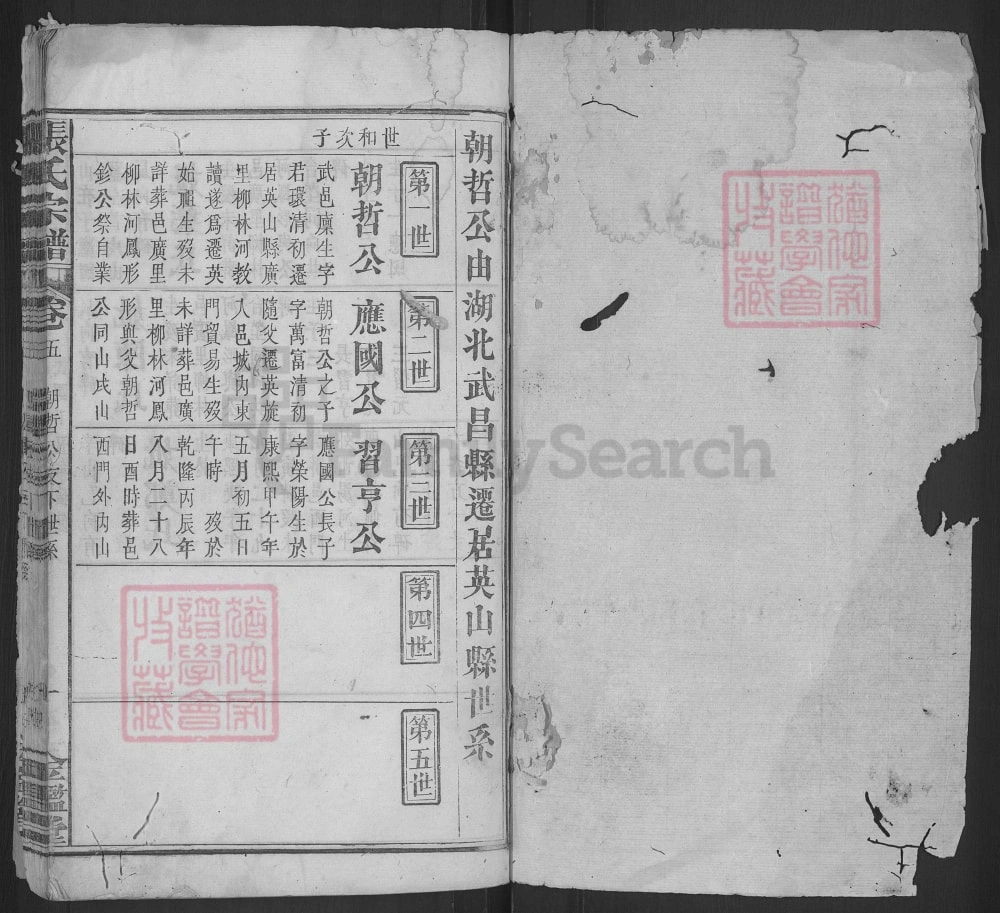 朝哲公由湖北武昌縣遷居英山縣世系
世和次子
第一世
朝哲公
武邑廪生字
君環清初遷
居英山縣廣
里柳林河教
讀遂爲遷英
始祖生殁未
詳葬邑廣里
柳林河鳳形
鉁公祭自業
第二世
應國公
朝哲公之子
字萬富清初
隨父遷英旋
入邑城內東
門貿易生殁
未詳葬邑廣
里柳林河鳳
形與父朝哲
公同山戌山
第三世
習亨公
應國公長子
字榮陽生於
康熙甲午年
五月初五日
午時 殁於
乾隆丙辰年
八月二十八
日酉時葬邑
西門外內山
第四世
第五世
張氏宗譜
卷五
朝哲公友下世系
一
金鑑堂
譜學會
FamilySearch